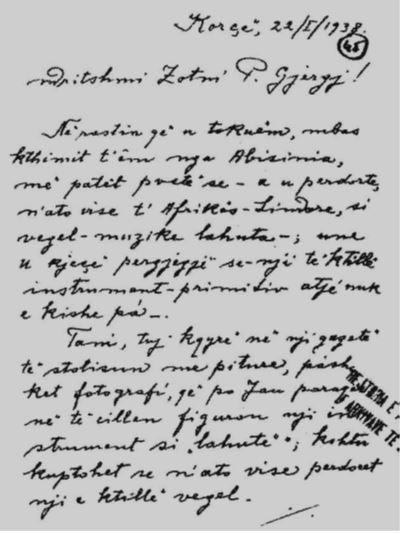 Korçë, 22/I/1938.
45
ndritshmi Zotni P. Gjergj!
Në rastin që u tokuëm, mbas
kthimit t'êm nga Abisinia,
më patët pvetë se - a u perdorte,
n'ato vise t'Afrikës-Lindore, si
vegel-muzike lahuta-; une
u kjeçë pergjegjë se-nji të'ktillë
instrument-primitiv atjé nuk
e kishe pá-.
Tani, tuj kqyrë në nji gazetë
të stolisun me piture, pashë
ket fotografí, që po Jau
në të cillen figuron nji in
strument si "lahutë"; kshtu
kuptohet se n'ato vise perdoret
nji e ktillë vegel.